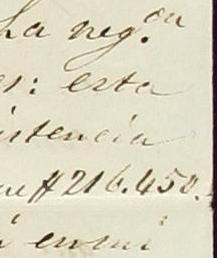 La neg.on
es: esta
istencia
ue #216.450.
i en mi